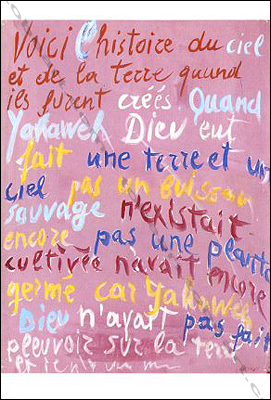 Voici l'histoire du ciel
et de la terre quand
ils furent créés. Quand
Yahaweh Dieu eut
fait une terre et un
ciel pas un buisson
sauvage n'existait
encore pas une plante
cultivée n'avait encore
germé car Yahaweh
Dieu n'avait pas fait
pleuvoir sur la terre
et